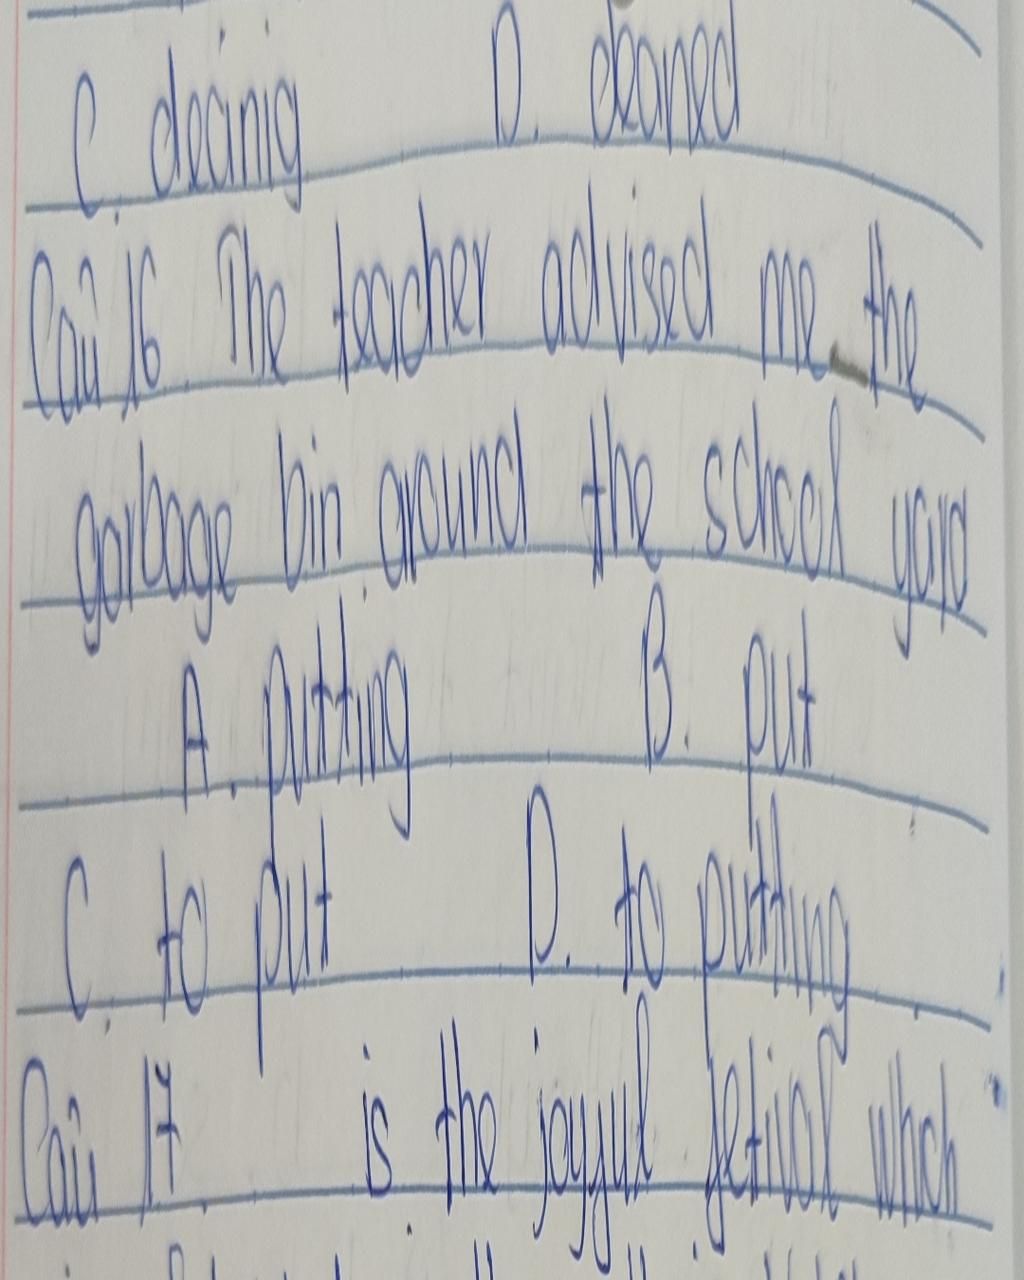 C. cleanig D. cleaned
Câu 16. The teacher advised me the
garbage bin around the school yard
A. putting B. put
C. to put D. to putting
Câu 17. is the joyful fetival which